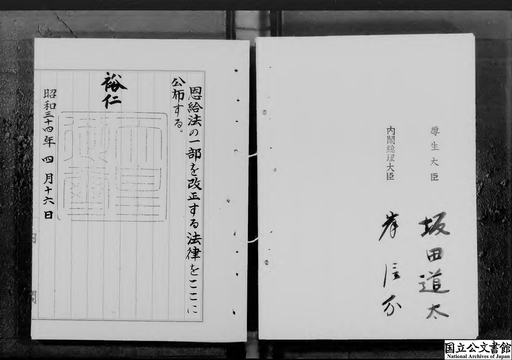 恩給法の一部を改正する法律をここに
公布する。
裕仁
昭和三十四年 四月十六日
内閣
厚生大臣
坂田道太
内閣総理大臣
岸信介
国立公文書館
National Archives of Japan